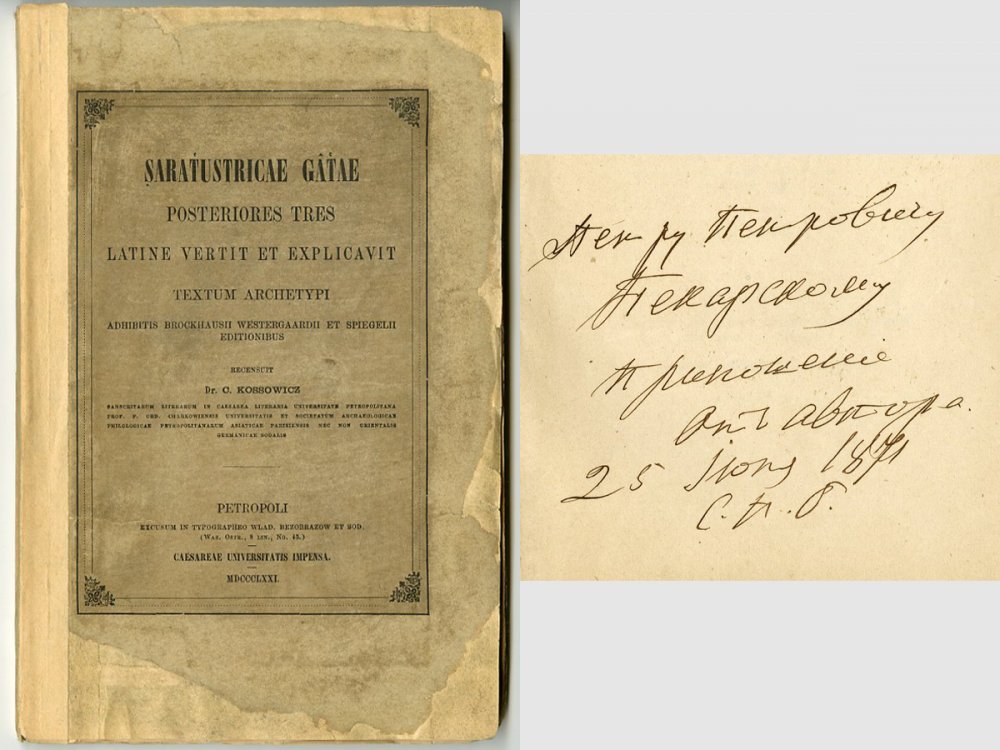 SARAṪUSTRICAE GÂṪAE
POSTERIORES TRES
LATINE VERTIT ET EXPLICAVIT
TEXTUM ARCHETYPI
ADHIBITIS BROCKHAUSII WESTERGAARDII ET SPIEGELII
EDITIONIBUS
RECENSUIT
Dr. C. KOSSOWICZ
SANSCRITARUM LITERARUM IN CAESAREA LITERARIA UNIVERSITATE PETROPOLITANA
PROF. P. ORD. CHARKOWIENSIS UNIVERSITATIS ET SOCIETATUM ARCHAEOLOGICAE
PHILOLOGICAE PETROPOLITANARUM ASIATICAE PARISIENSIS NEC NON ORIENTALIS
GERMANICAE SODALIS
PETROPOLI
EXCUSUM IN TYPOGRAPHEO WLAD. BEZOBRAZOW ET SOD.
(WAS. OSTR., 8 LIN., No. 45.)
CAESAREAE UNIVERSITATIS IMPENSA.
MDCCCLXXI.
Петру Петровичу
Пекарскому
приношеніе
отъ автора.
25 Іюня 1871
С.П.Б.